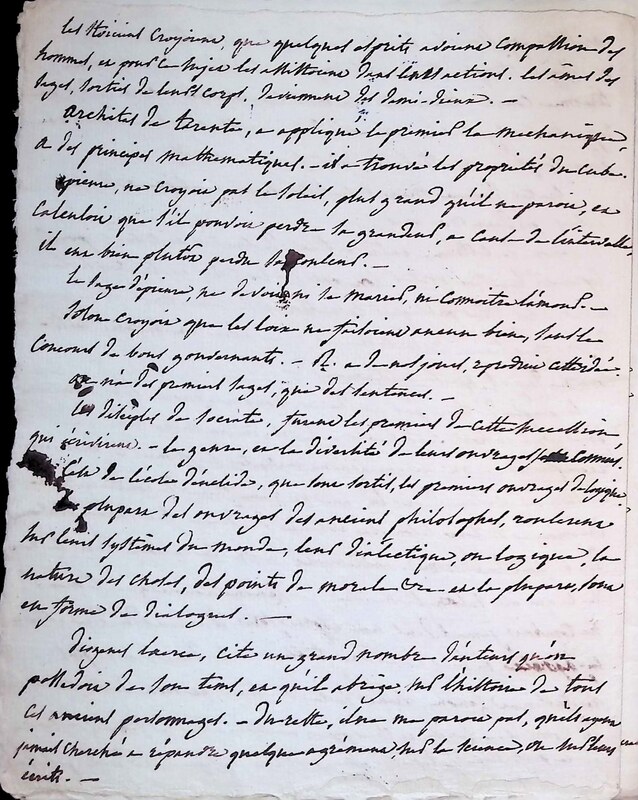 les stoiciens croyoient, que quelques esprits avoient compassion des
hommes, et pour ce sujet les assistoient dans leurs actions. les âmes des
sages, sorties de leurs corps, deviennent des demi-dieux. —
architas de tarente, a appliqué le premier la mechanique,
a des principes mathematiques. — il a trouvé les propriétés du cube.
épicure, ne croyoit pas le soleil, plus grand qu'il ne paroit, et
calculoit que s'il pouvoit perdre sa grandeur, a cause de l'intervalle,
il eut bien plutôt perdu sa couleur. —
le sage d'épicure, ne devoit ni se marier, ni connoitre l'amour. —
Solon croyoit que les loix ne faisoient aucun bien, sans le
concours de bons gouvernants. — R. a de nos jours, reproduit cette idée.
on n'a des premiers sages, que des sentences. —
Les disciples de Socrate, furent les premiers de cette succession
qui écrivirent. — le genre, et la diversité de leurs ouvrages sont connus.
C'est de l'école d'euclide, que sont sortis, les premiers ouvrages de logique
La plupart des ouvrages des anciens philosophes, roulerent
sur leurs systêmes du monde, leur dialectique, ou logique, la
nature des choses, des points de morale &c. — et la plupart, sont
en forme de dialogues. —
diogene laerce, cite un grand nombre d'auteurs qu'on
possedoit de son tems, et qu'il abrège, sur l'histoire de tous
ces anciens personnages. — du reste, il ne me paroit pas, qu'ils ayent
jamais cherché a répandre quelque agrément, sur la science, ou sur leurs
écrits. —